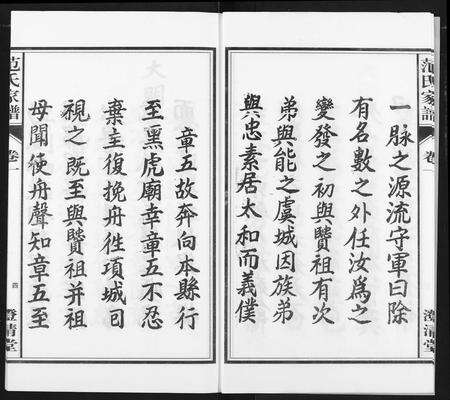 范氏家譜
卷一
澄清堂
一脉之源流守軍曰除
有名數之外任汝為之
變發之初與贊祖有次
弟與能之虞城因族弟
與忠素居太和而義僕
章五故奔向本縣行
至黑虎廟幸章五不忍
棄主復挽舟徃項城司
視之既至與贊祖并祖
母聞使舟聲知章五至
范氏家譜
卷一
四
澄清堂